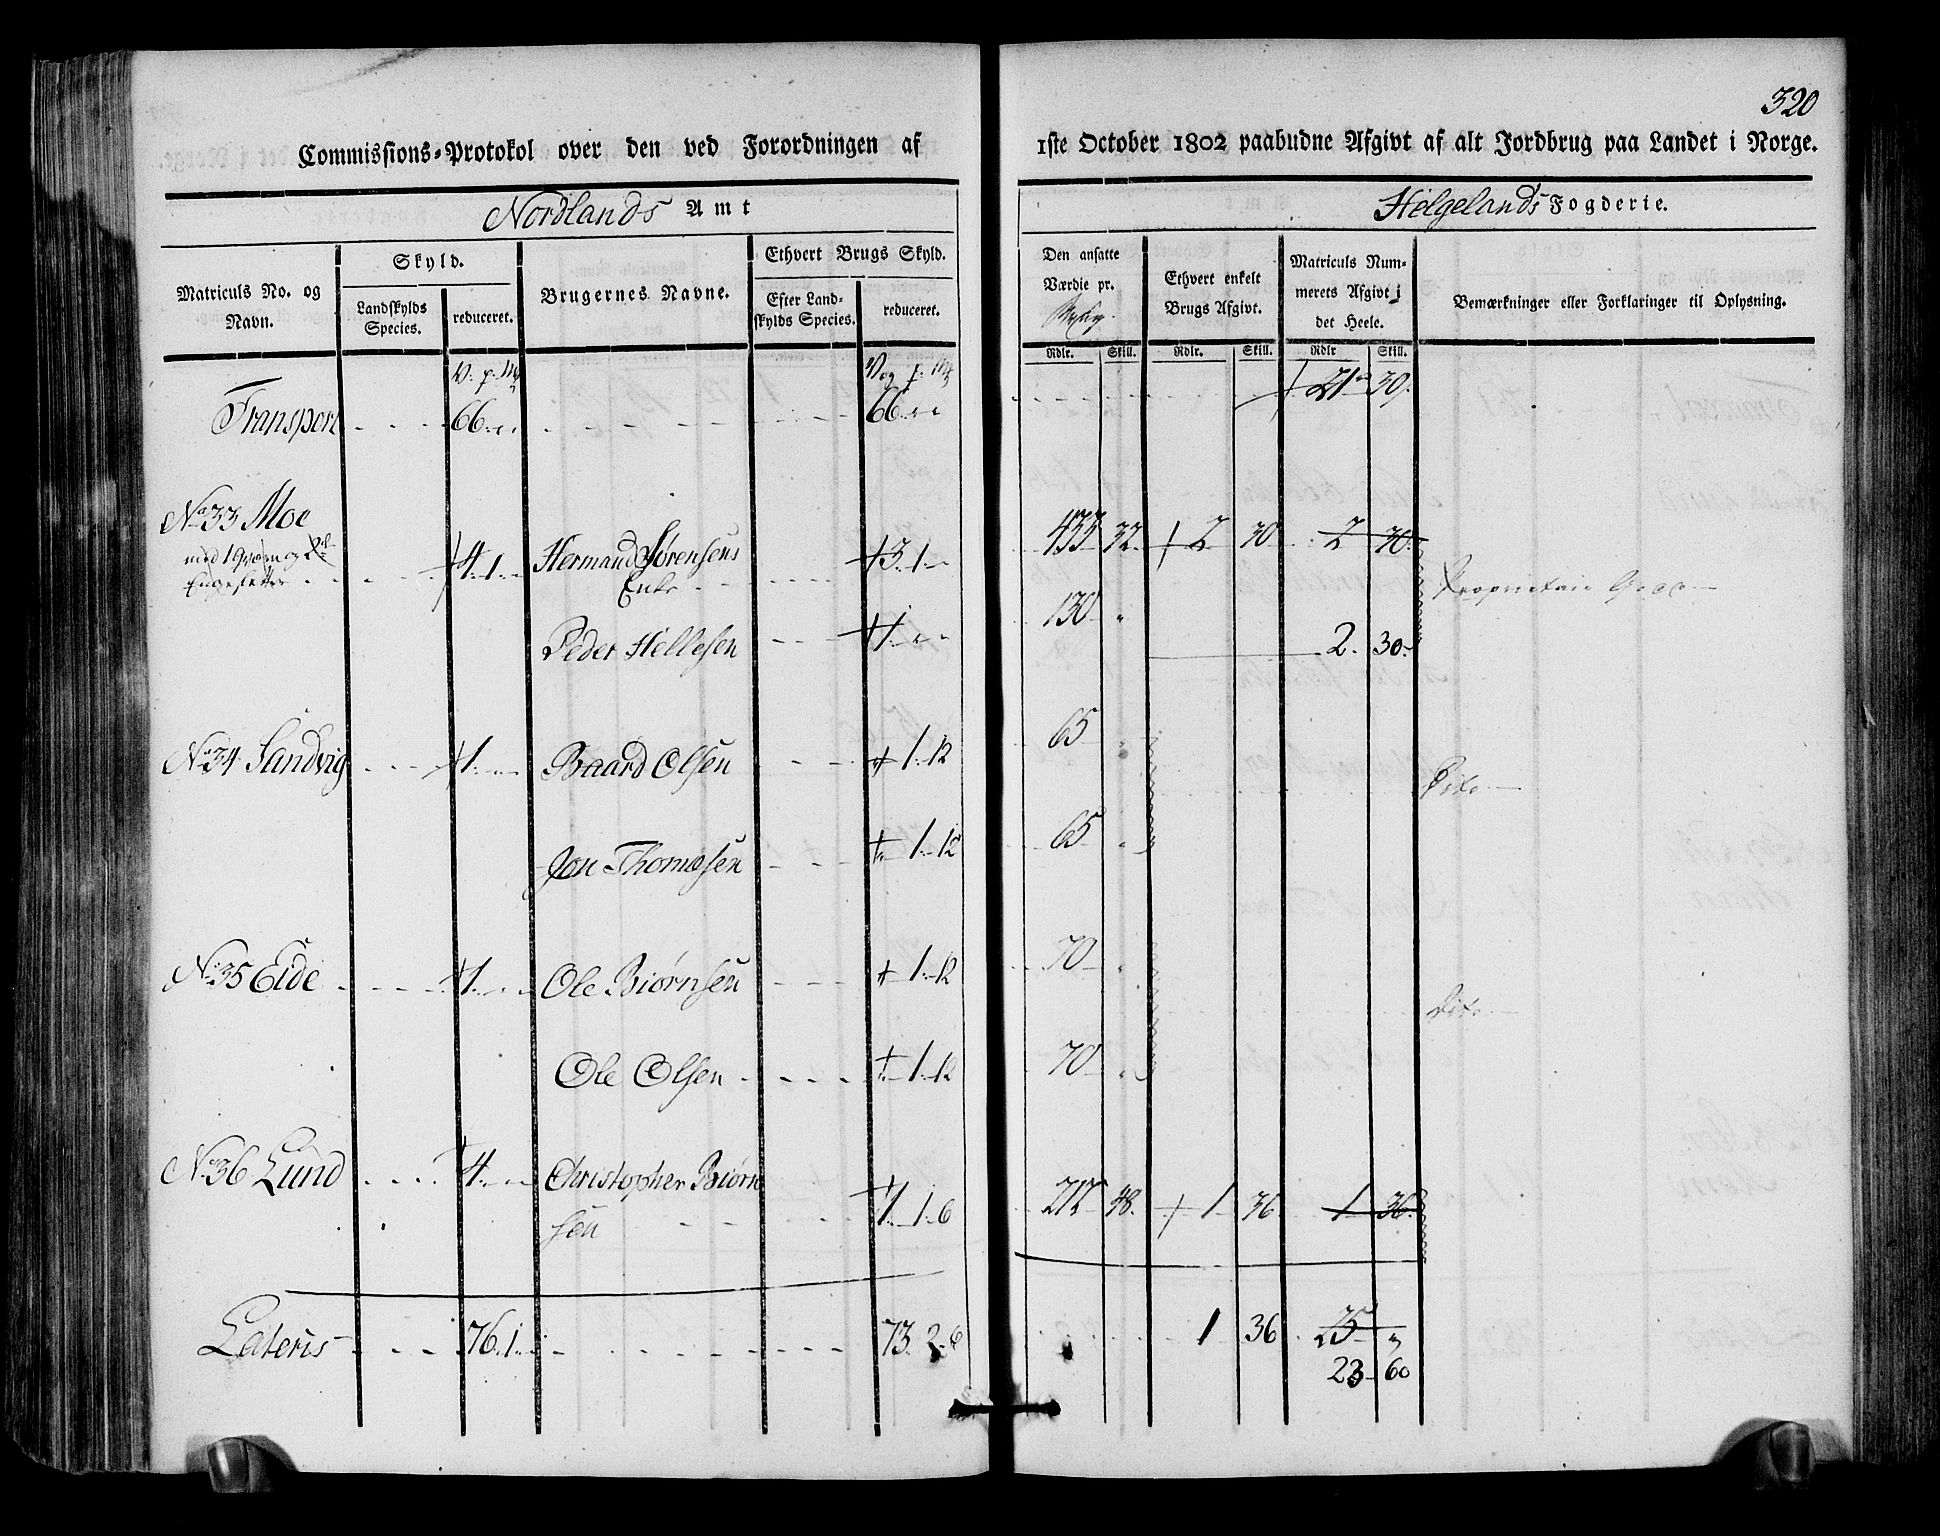 320
Commissions-Protokol over den ved Forordningen af
1ste October 1802 paabudne Afgivt af alt Jordbrug paa Landet i Norge.
Nordlands Amt
Helgelands Fogderie.
Matriculs No. og Navn.
Skyld.
Landskylds Species.
reduceret.
Brugernes Navne.
Ethvert Brugs Skyld.
Efter Land-skylds Species.
reduceret.
Den ansatte Værdie pr.
Ethvert enkelt Brugs Afgivt.
Matriculs Nummerets Afgivt i det Heele.
Bemærkninger eller Forklaringer til Oplysning.
Rdlr. Skill. Rdlr. Skill. Rdlr Skill.
Transport 66 66 21 30
No 33 Moe
4. 1. Hermand Sørensens Enke 3. 1. 433 32. 2 30 2 30. Proprietair
Peder Hellesen 1. 130 2. 30.
No 34 Sandvig 1. Baard Olsen 1. 12 65 Dito
Jon Thomesen 1. 12 65
No 35 Eide 1. Ole Biørnsen 1. 12 70 Dito
Ole Olsen 1. 12 70
No 36 Lund 4. Christopher Biørnsen 1. 1. 6 212 48. 1 36 1 36.
Lateris 76. 1. 73. 2. 6 1 36 25
23 60